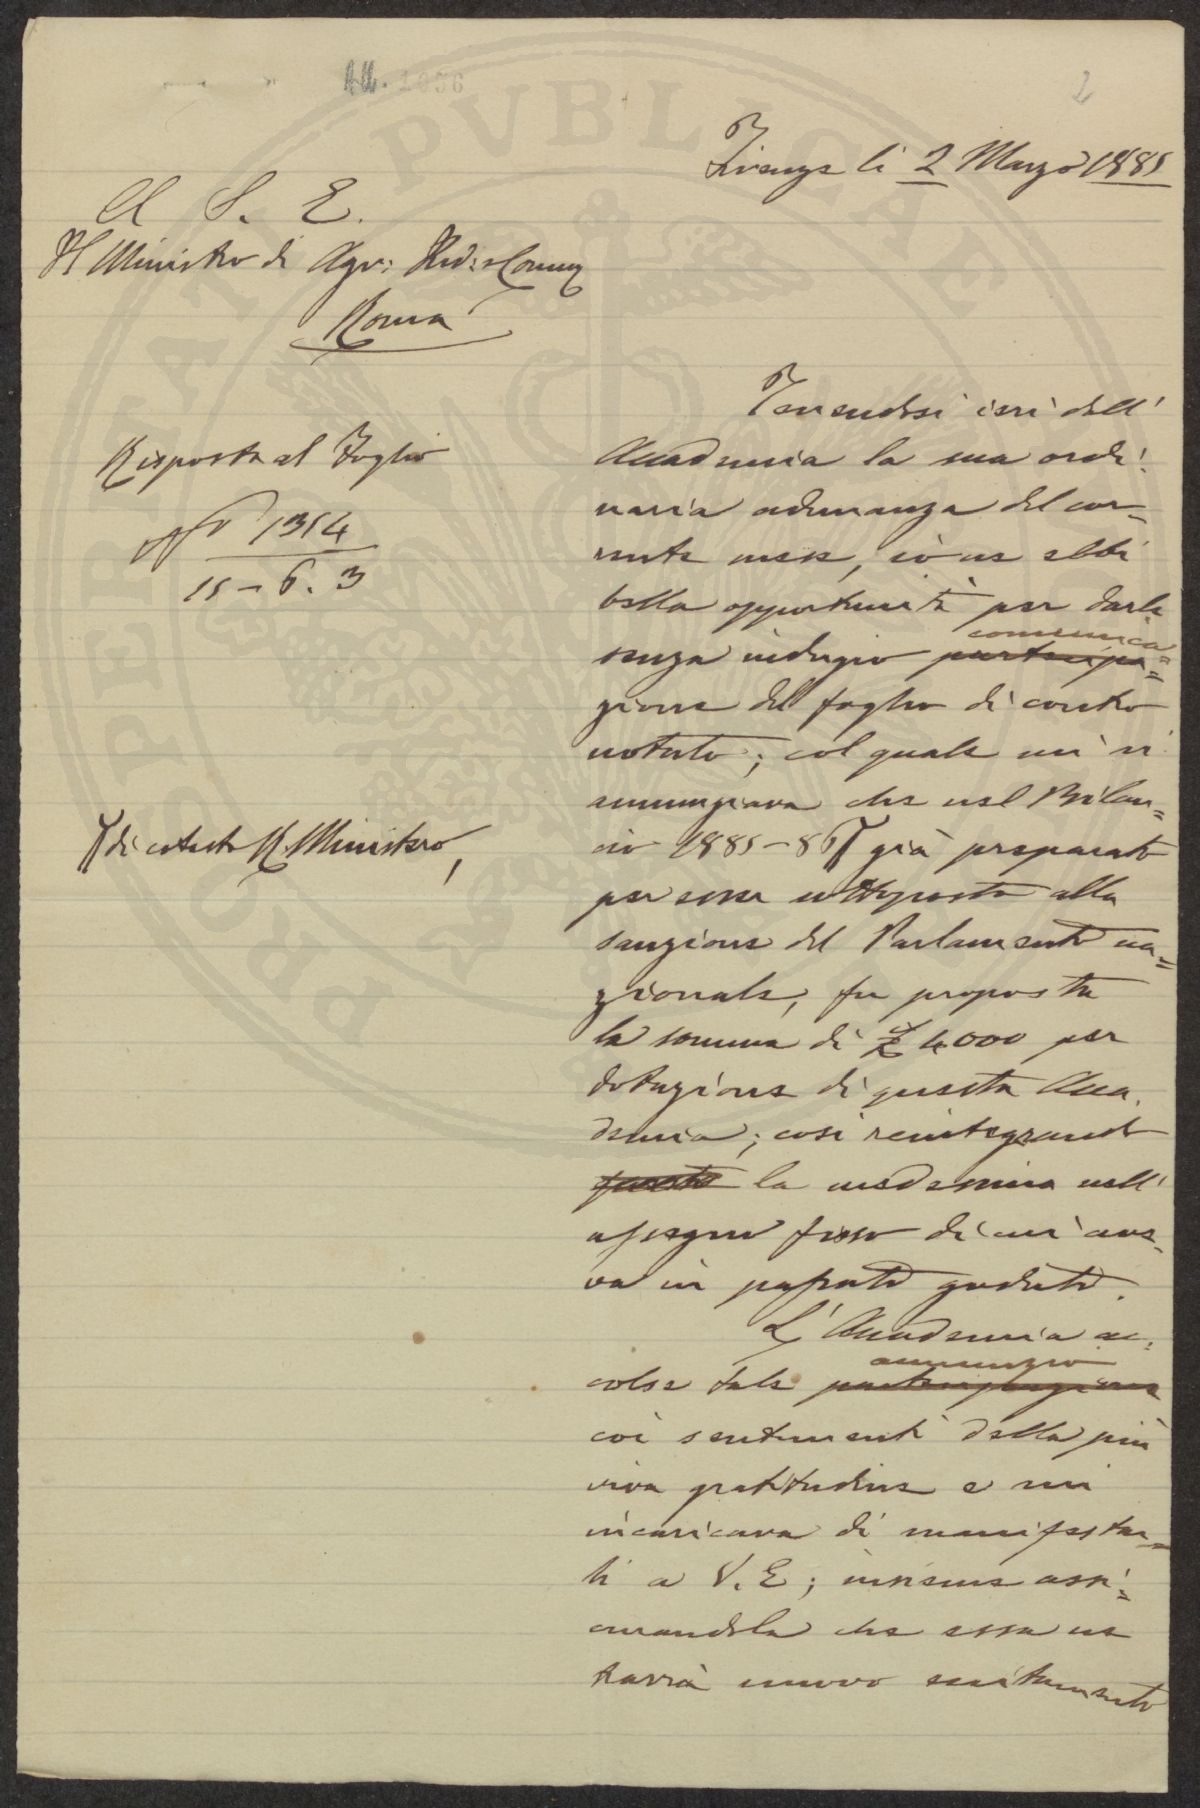 All. 1056
2
Firenze li 2 Marzo 1885
A S. E.
Il Ministro di Agr: Ind: e Comm
Roma
Risposta al Foglio
N° 1314
15 - 6. 3
Tenendosi ieri dall'
Accademia la sua ordi-
naria adunanza del cor=
rente mese, io ne ebbi
bella opportunità per darle
senza indugio partecipa=
comunica=
zione del foglio di contro
notato; col quale mi si
annunziava che nel Bilan=
cio 1885-86 già preparato
di codesto R. Ministero,
per esser sottoposto alla
sanzione del Parlamento na=
zionale, fu proposta
la somma di £ 4000 per
dotazione di questa Acca.
demia; così reintegrando
questa la medesima nell'
assegno fisso di cui ave-
va in passato goduto.
L'Accademia ac-
colse tale partecipazione
annunzio
coi sentimenti della più
viva gratitudine e mi
incaricava di manifestar=
li a V. E; insieme assi=
curandola che essa ne
trarrà nuovo eccitamento